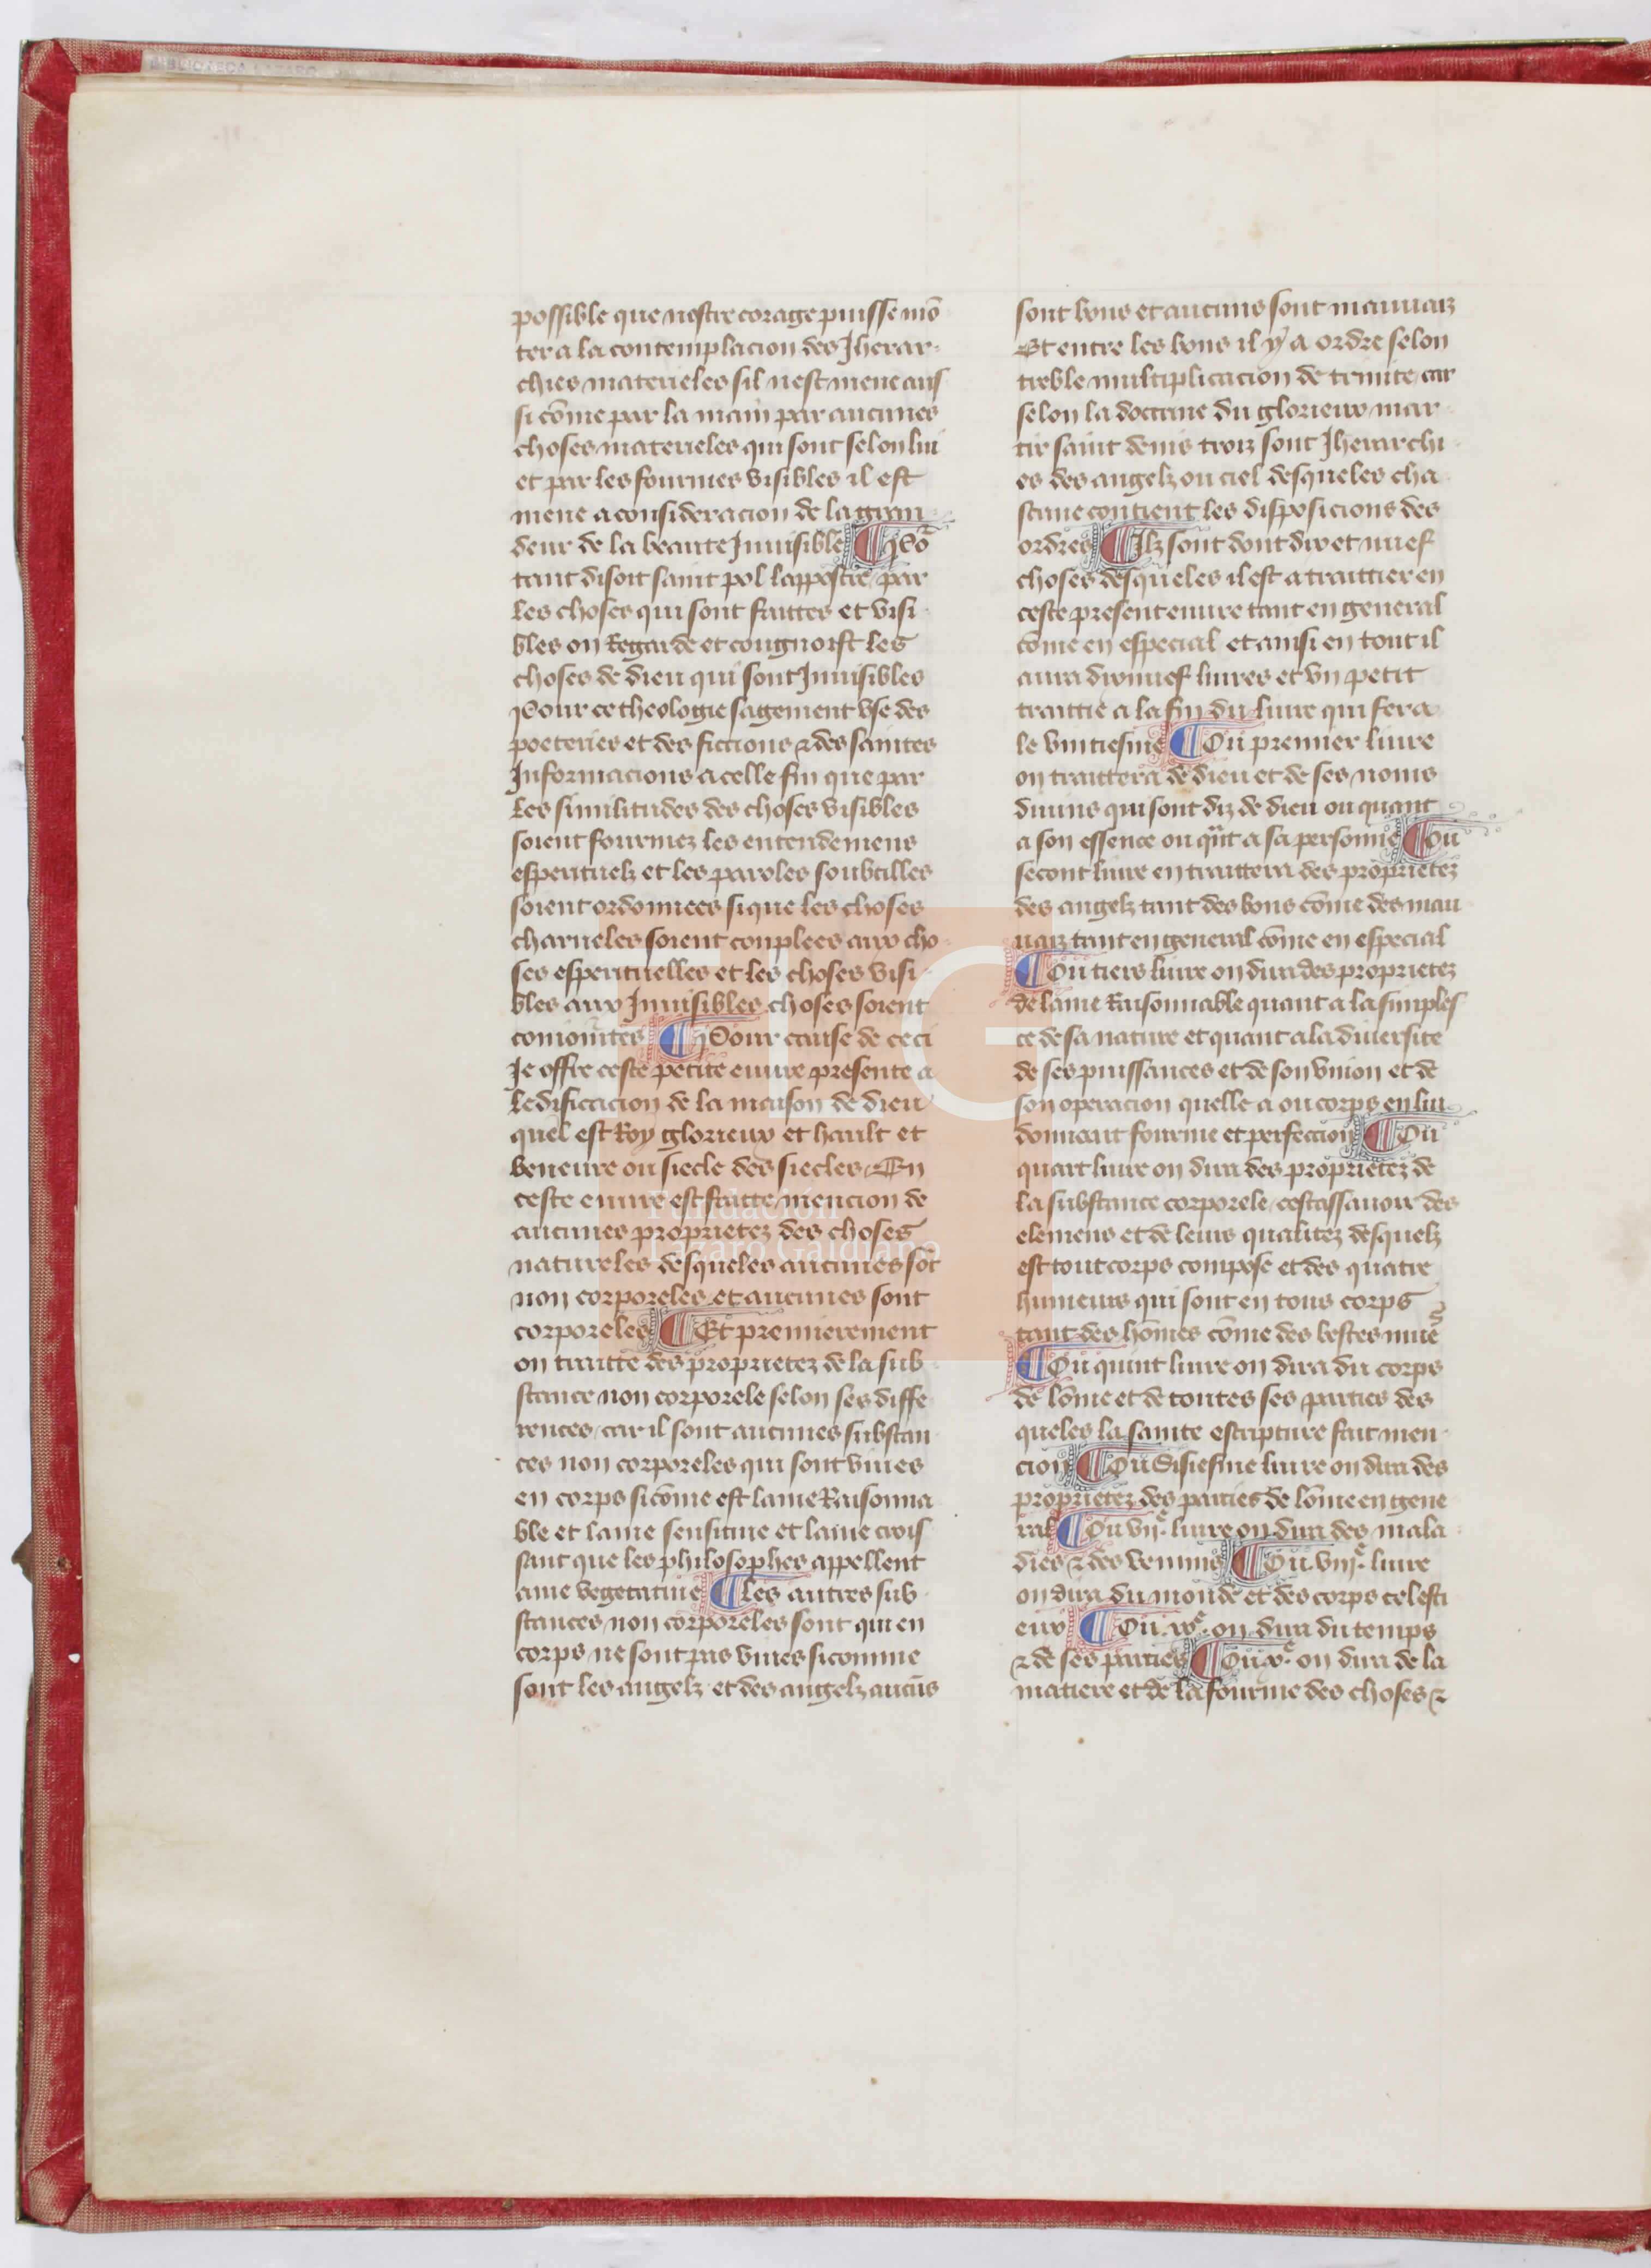 BIBLIOTECA LAZARO
possible que nostre corage puisse mō
ter a la contemplacion des Iherar
chies materieles sil nest mene aus
si cōme par la main par aucunes
choses materieles qui sont selon lui
et par les fourmes visibles il est
mene a consideracion de la gran
deur de la beaute Inuisible ¶ Pō
tant disoit saint pol lappostre par
les choses qui sont faittes et visi
bles on Regarde et congnoist les
choses de dieu qui sont Inuisibles
Pour ce theologie sagement vse des
poeteries et des fictions ⁊ des saintes
Informacions a celle fin que par
les similitudes des choses visibles
soient fourmez les entendemens
esperituelz et les paroles soubtilles
soient ordonnees si que les choses
charneles soient couplees aux cho
ses esperituelles et les choses visi
bles aux Inuisibles choses soient
coniointes ¶ Pour cause de ceci
Je offre ceste petite euure presente a
ledificacion de la maison de dieu
quel est Roy glorieux et hault et
beneure ou siecle des siecles En
ceste euure est faitte mencion de
aucunes proprietez des choses
natureles desqueles aucunes sōt
non corporeles et aucunes sont
corporeles ¶ Et premierement
on traitte des proprietez de la sub
stance non corporele selon ses diffe
rences car il sont aucunes substan
ces non corporeles qui sont vnies
en corps si cōme est lame Raisonna
ble et lame sensitiue et lame crois
sant que les philosophes appellent
ame vegetatiue ¶ Les autres sub
stances non corporeles sont qui en
corps ne sont pas vnies si comme
sont les angelz et des angelz aucūs
sont bons et aucuns sont mauuaiz
Et entre les bons il y a ordre selon
treble multiplicacion de trinite car
selon la doctrine du glorieux mar
tir saint denis troiz sont Iherarchi
es des angelz ou ciel desqueles cha
scune contient les disposicions des
ordres ¶ Ilz sont dont dix et nuef
choses desqueles il est a traittier en
ceste present euure tant en general
cōme en especial et ainsi en tout il
aura dixnuef liures et vn petit
traittie a la fin du liure qui fera
le vintiesme ¶ Ou premier liure
on traittera de dieu et de ses noms
diuins qui sont diz de dieu ou quant
a son essence ou qūt a sa personne ¶ Ou
secont liure en traittera des proprietez
des angelz tant des bons cōme des mau
uaiz tant en general cōme en especial
¶ Ou tiers liure on dira des proprietez
de lame Raisonnable quant a la simples
ce de sa nature et quant a la diuersite
de ses puissances et de son vnion et de
son operacion quelle a ou corps en lui
donnant fourme et perfeccion ¶ Ou
quart liure on dira des proprietez de
la substance corporele cestassauoir des
elemens et de leurs qualitez desquelz
est tout corps compose et des quatre
humeurs qui sont en tous corps
tant des hōmes cōme des bestes mues
¶ Ou quint liure on dira du corps
de lōme et de toutes ses parties des
queles la sainte escripture fait men
cion ¶ Ou Sisiesme liure on dira des
proprietez des parties de lōme en gene
ral ¶ Ou vijᵉ liure on dira des mala
dies ⁊ des venins ¶ Ou viijᵉ liure
on dira du monde et des corps celesti
eux ¶ Ou ixᵉ on dira du temps
⁊ de ses parties ¶ Ou xᵉ on dira de la
matiere et de la fourme des choses ⁊
LG
Fundación
Lázaro Galdiano